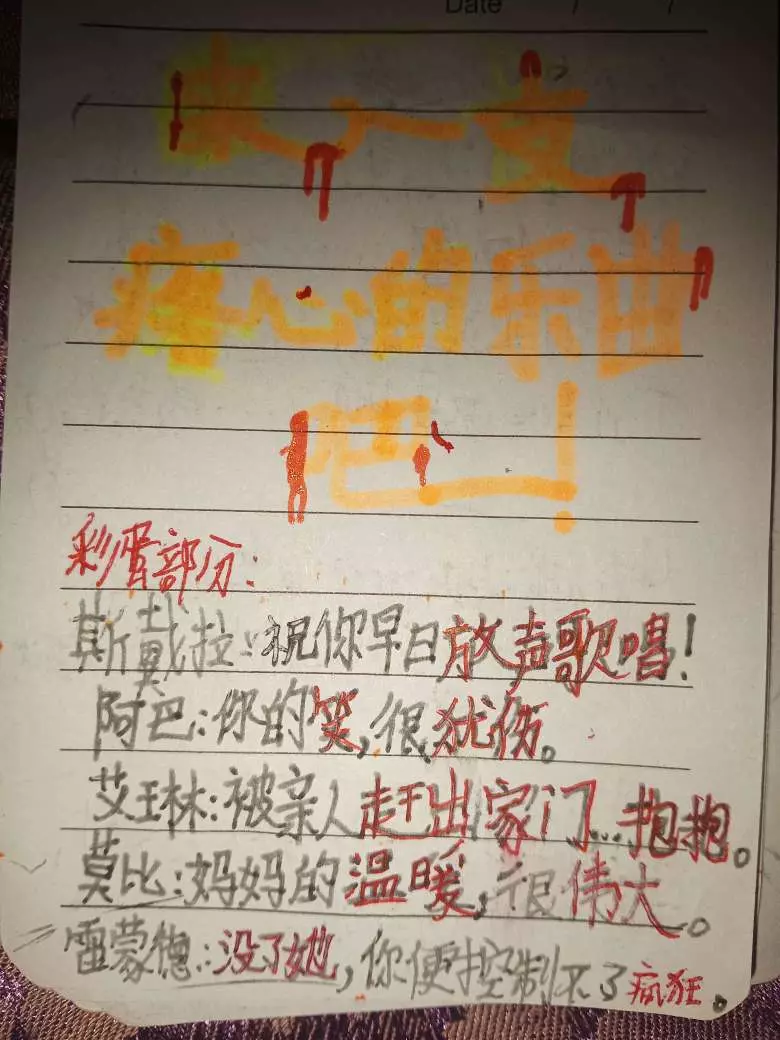 Date / /
来一支
疼心的乐曲
吧!
彩蛋部分:
斯戴拉:祝你早日放声歌唱!
阿巴:你的笑,很犹伤。
艾玨林:被亲人赶出家门...抱抱。
莫比:妈妈的温暖,很伟大。
雷蒙德:没了她,你便控制不了疯狂。